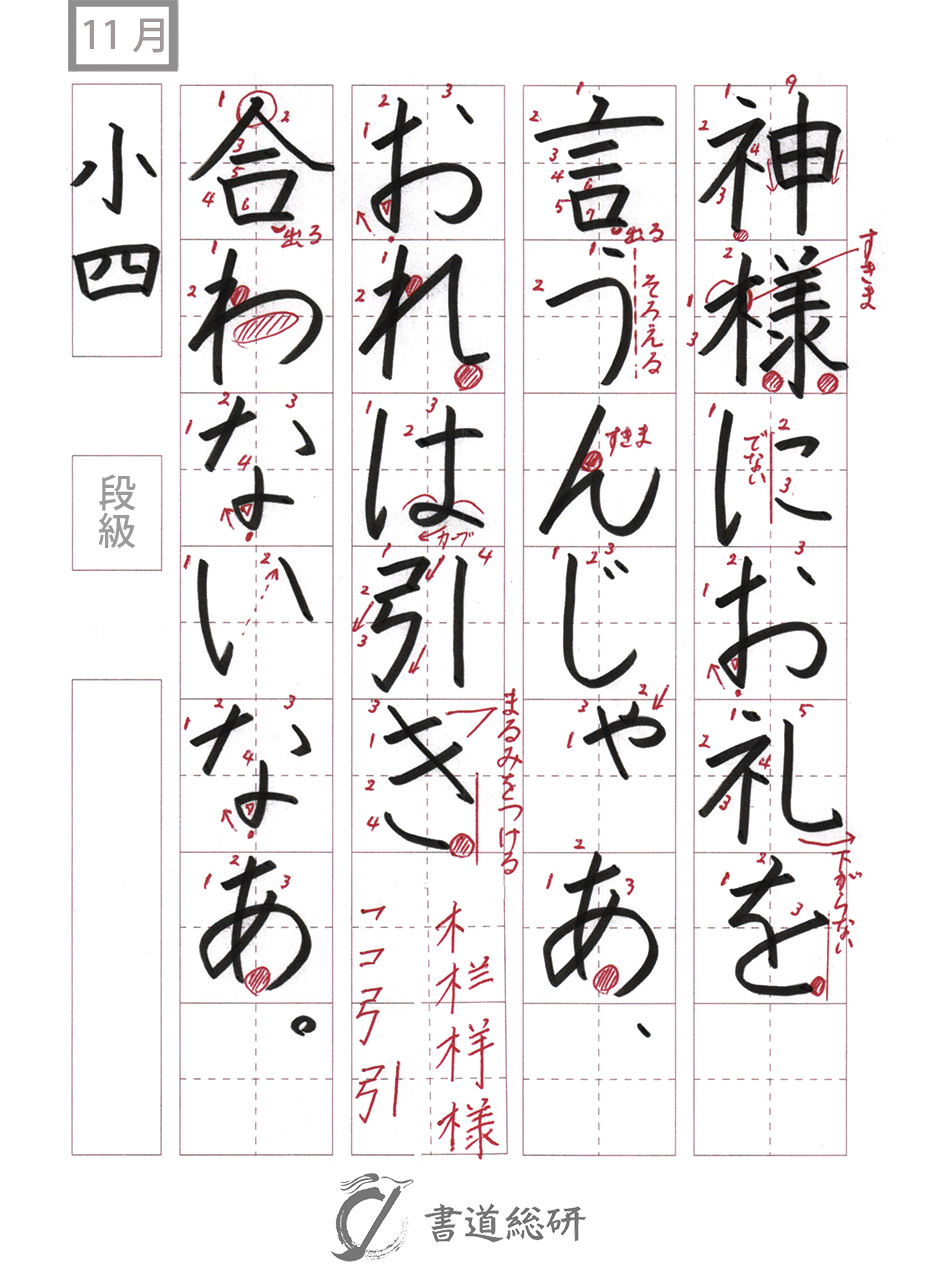 11月
神様にお礼を
言うんじゃあ、
おれは引き
合わないなあ。
小四
段級
すきま
でない
下がらない
出る
そろえる
すきま
カーブ
まるみをつける
出る
木 栏 样 様
フ コ 弓 引
書道総研